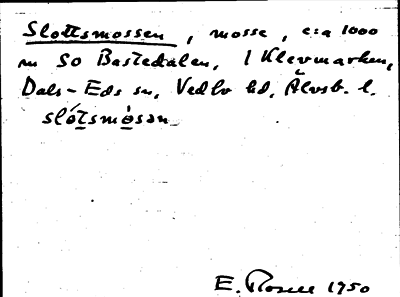 Slottsmossen, mosse, c:a 1000
m SO Bastedalen, I Klevmarken,
Dals-Eds sn, Vedbo hd, Älvsb. l.
slótsmòsən
E. Rosell 1950